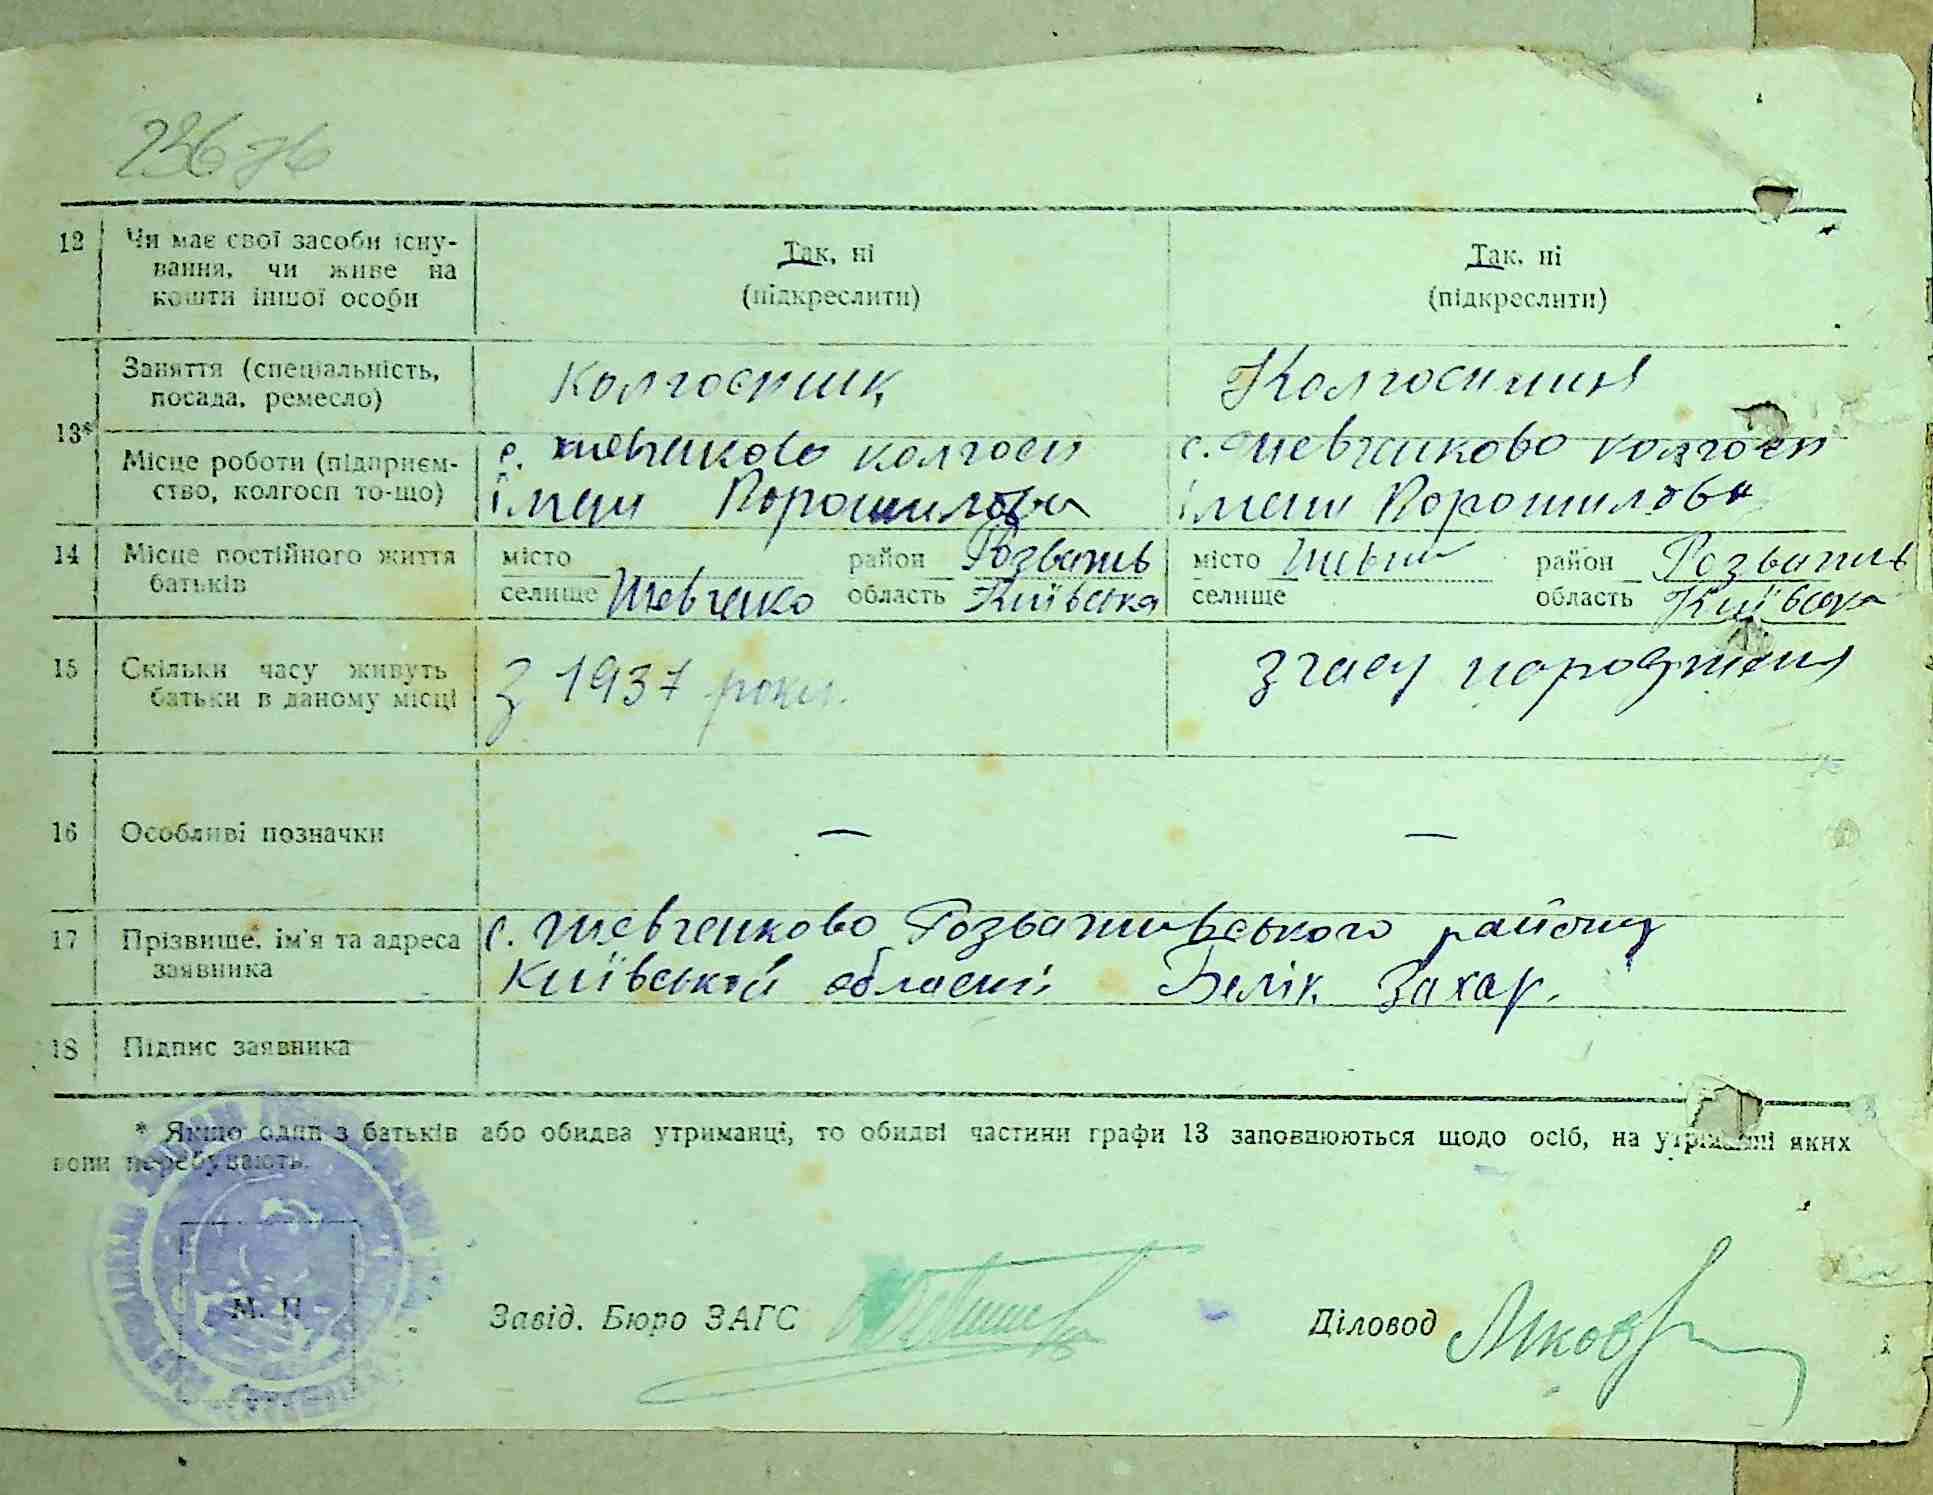 236 зв
12 Чи має свої засоби існу-
вання, чи живе на
кошти іншої особи
Так, ні
(підкреслити)
Так, ні
(підкреслити)
13*
Заняття (спеціальність,
посада, ремесло)
Колгоспник
Колгоспниця
Місце роботи (підприєм-
ство, колгосп то-що)
с. Шевченково колгосп
імени Ворошилова
с. Шевченково колгосп
імени Ворошилова
14 Місце постійного життя
батьків
місто район Розважів
селище Шевченко область Київська
місто Шевч район Розважів
селище область Київська
15 Скільки часу живуть
батьки в даному місці
З 1937 року.
З часу народження
16 Особливі позначки
—
—
17 Прізвище, ім'я та адреса
заявника
с. Шевченково Розважівського району
Київської області Белік Захар.
18 Підпис заявника
* Якщо один з батьків або обидва утриманці, то обидві частини графи 13 заповнюються щодо осіб, на утриманні яких
вони перебувають.
М. П
Завід. Бюро ЗАГС
Діловод